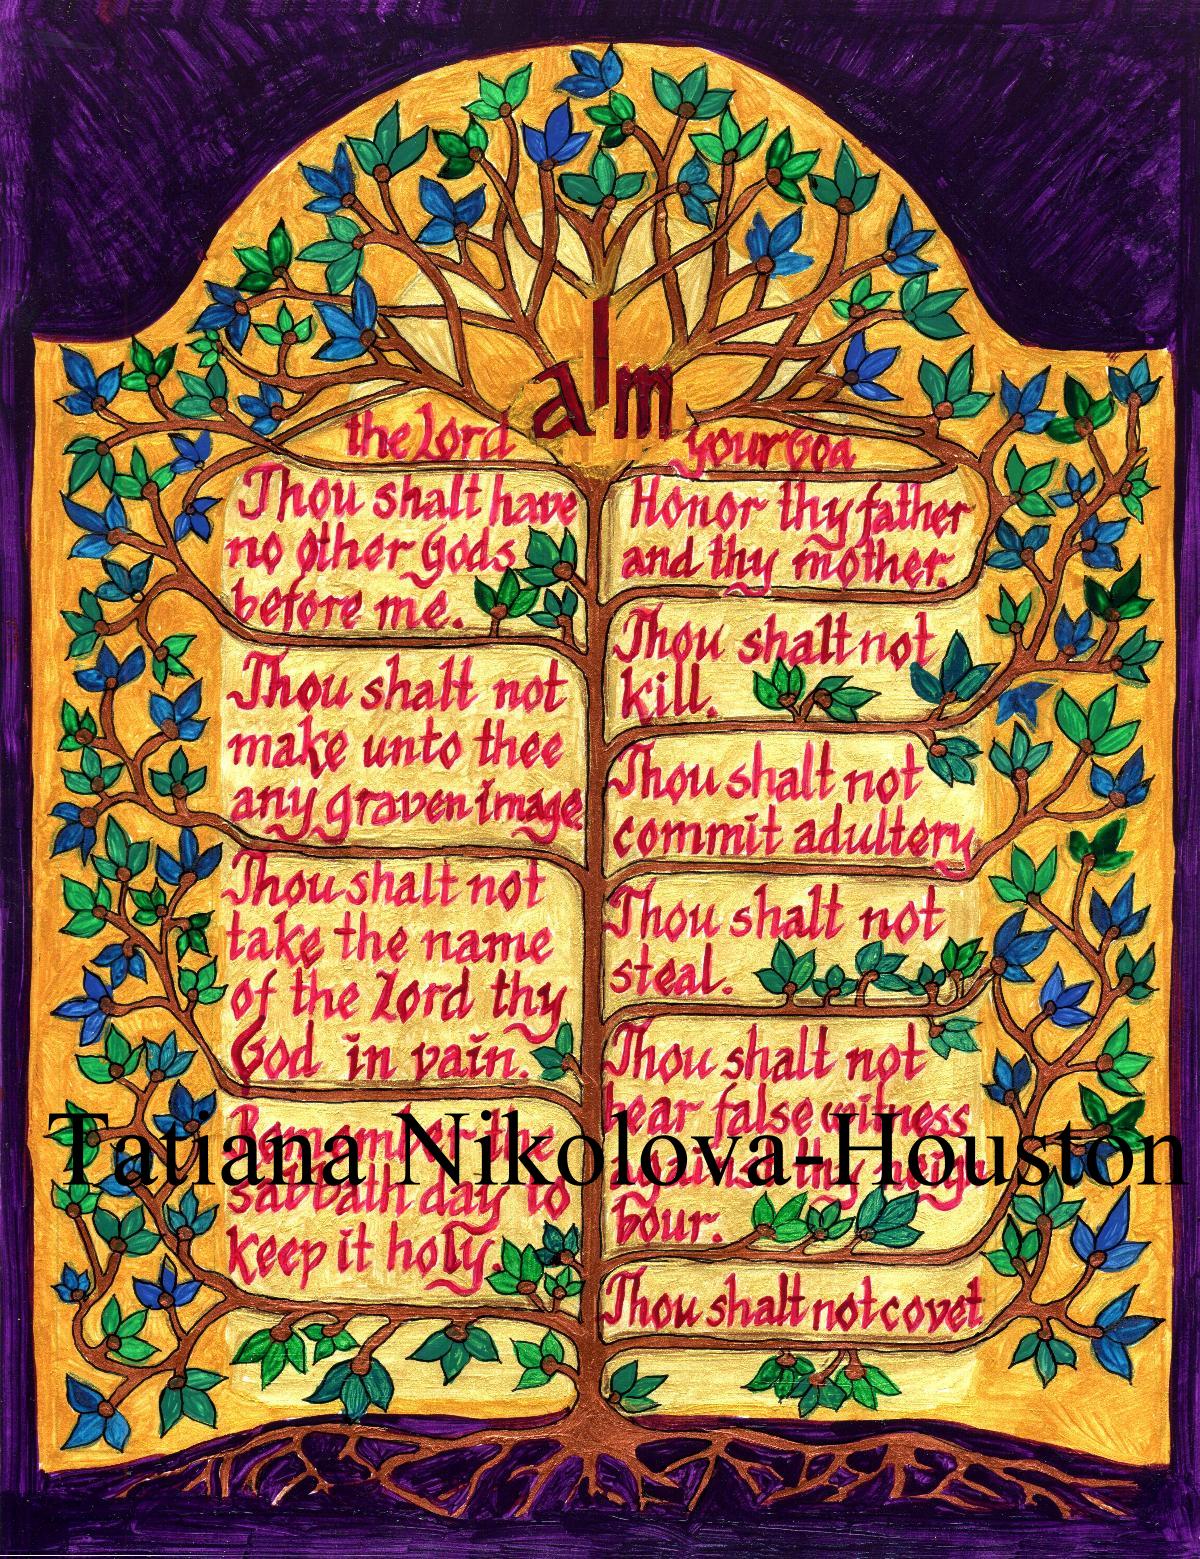 I
a m
the Lord your God
Thou shalt have
no other gods
before me.
Thou shalt not
make unto thee
any graven image.
Thou shalt not
take the name
of the Lord thy
God in vain.
Remember the
sabbath day to
keep it holy.
Honor thy father
and thy mother.
Thou shalt not
kill.
Thou shalt not
commit adultery
Thou shalt not
steal.
Thou shalt not
bear false witness
against thy neigh
bour.
Thou shalt not covet
Tatiana Nikolova-Houston